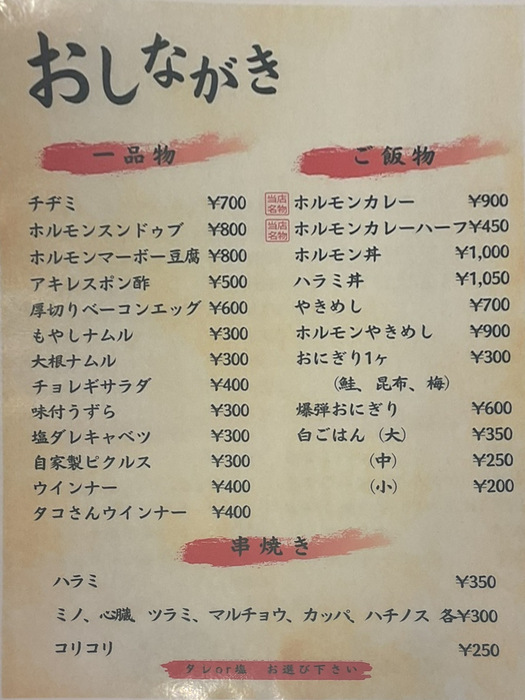 おしながき
一品物
チヂミ ¥700
ホルモンスンドゥブ ¥800
ホルモンマーボー豆腐 ¥800
アキレスポン酢 ¥500
厚切りベーコンエッグ ¥600
もやしナムル ¥300
大根ナムル ¥300
チョレギサラダ ¥400
味付うずら ¥300
塩ダレキャベツ ¥300
自家製ピクルス ¥300
ウインナー ¥400
タコさんウインナー ¥400
ご飯物
当店名物 ホルモンカレー ¥900
当店名物 ホルモンカレーハーフ¥450
ホルモン丼 ¥1,000
ハラミ丼 ¥1,050
やきめし ¥700
ホルモンやきめし ¥900
おにぎり1ヶ ¥300
(鮭、昆布、梅)
爆弾おにぎり ¥600
白ごはん (大) ¥350
(中) ¥250
(小) ¥200
串焼き
ハラミ ¥350
ミノ、心臓、ツラミ、マルチョウ、カッパ、ハチノス 各¥300
コリコリ ¥250
タレor塩 お選び下さい